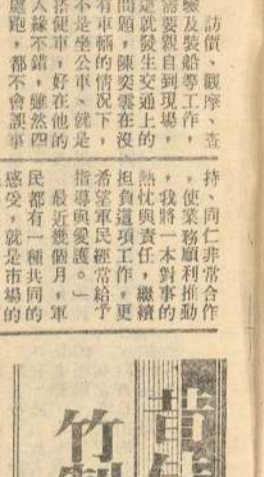 訪價、觀摩、查
驗及裝船等工作，
需要親自到現場，
這就發生交通上的
問題，陳奕雲在沒
有車輛的情況下，
不是坐公車、就是
搭便車，好在他的
人緣不錯，雖然四
處跑，都不會誤事
持、同仁非常合作
，使業務順利推動
，我將一本對事的
熱忱與責任，繼續
担負這項工作，更
希望軍民經常給予
指導與愛護。」
最近幾個月，軍
民都有一種共同的
感受，就是市場的
竹製